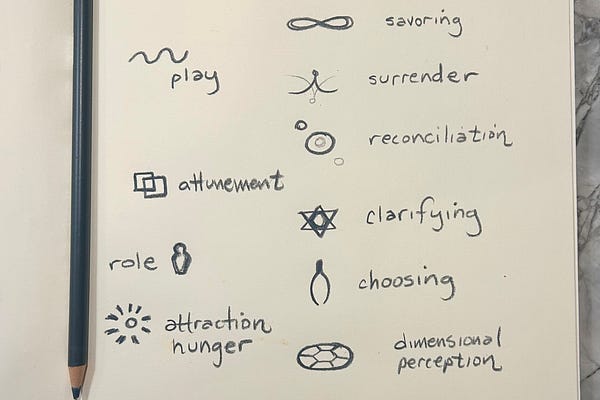 savoring
play
surrender
reconciliation
attunement
clarifying
role
choosing
attraction
hunger
dimensional
perception